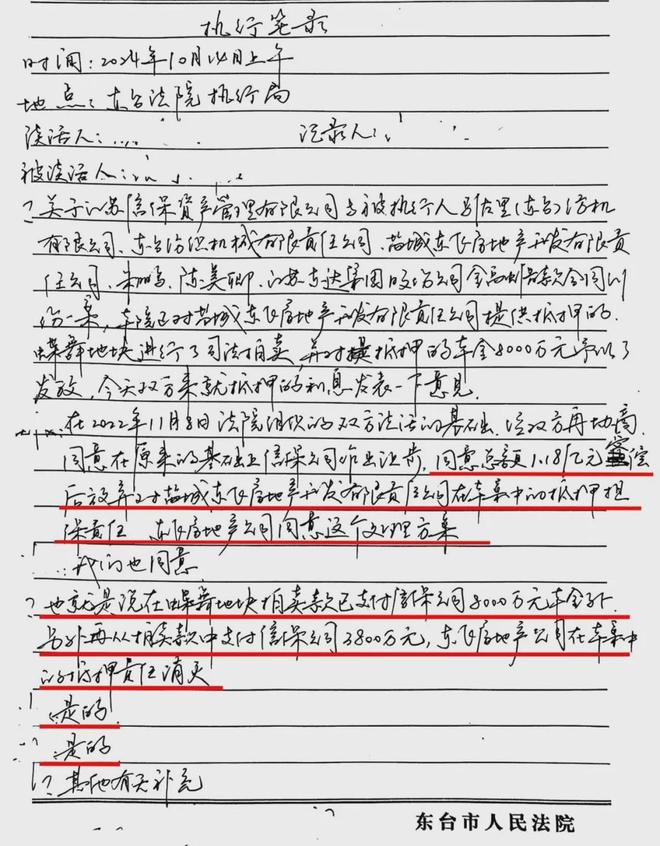 执行笔录
时间：2024年10月14日上午
地点：东台法院执行局
谈话人： 记录人：
被谈话人：
？关于江苏信保资产管理有限公司与被执行人别古里（东台）纺机
有限公司、东台纺织机械有限责任公司、盐城东飞房地产开发有限责
任公司、朱鹏、陈美卿、江苏东达集团股份公司金融借款合同纠
纷一案，本院已对盐城东飞房地产开发有限责任公司提供抵押的
蝶舞地块进行了司法拍卖，并对抵押的本金8000万元予以了
发放，今天双方来就抵押的利息发表一下意见。
：在2022年11月8日法院组织的双方谈话的基础，经双方再协商，
同意在原来的基础上信保公司作出让步，同意总额1.18亿元受偿
后放弃对盐城东飞房地产开发有限责任公司在本案中的抵押担
保责任，东飞房地产公司同意这个处理方案
：我们也同意
？也就是说在蝶舞地块拍卖款已支付信保公司8000万元本金外，
另外再从拍卖款中支付信保公司3800万元，东飞房地产公司在本案中
的抵押责任消灭
：是的
：是的
？其他有无补充
东台市人民法院